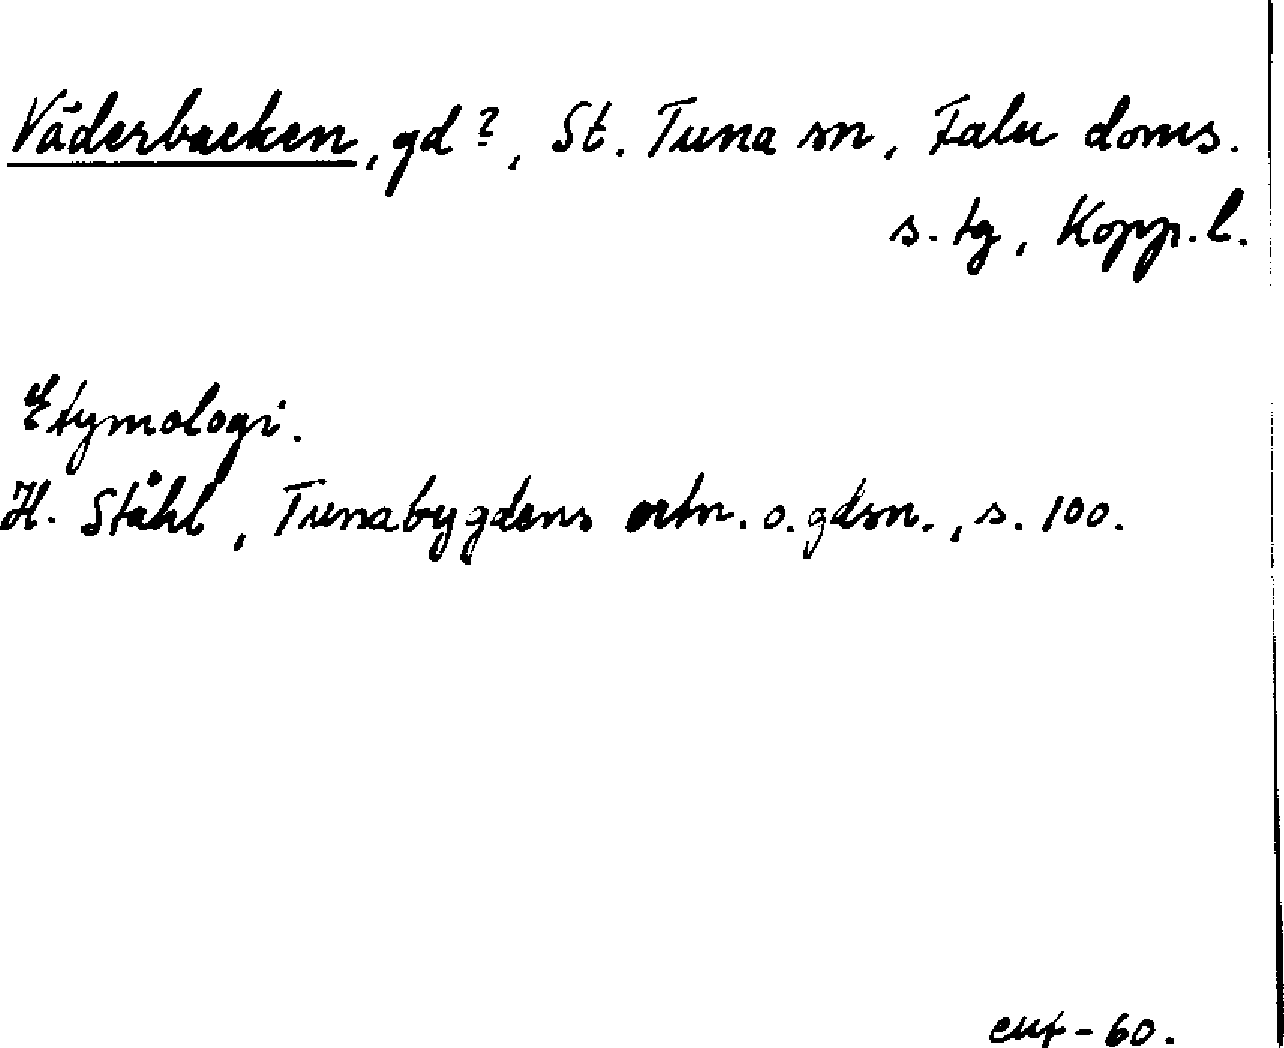 Väderbacken, gd?, St. Tuna sn, Falu doms.
s. tg, Kopp. l.
Etymologi.
H. Ståhl, Tunabygdens ortn. o. gdsn., s. 100.
-60.